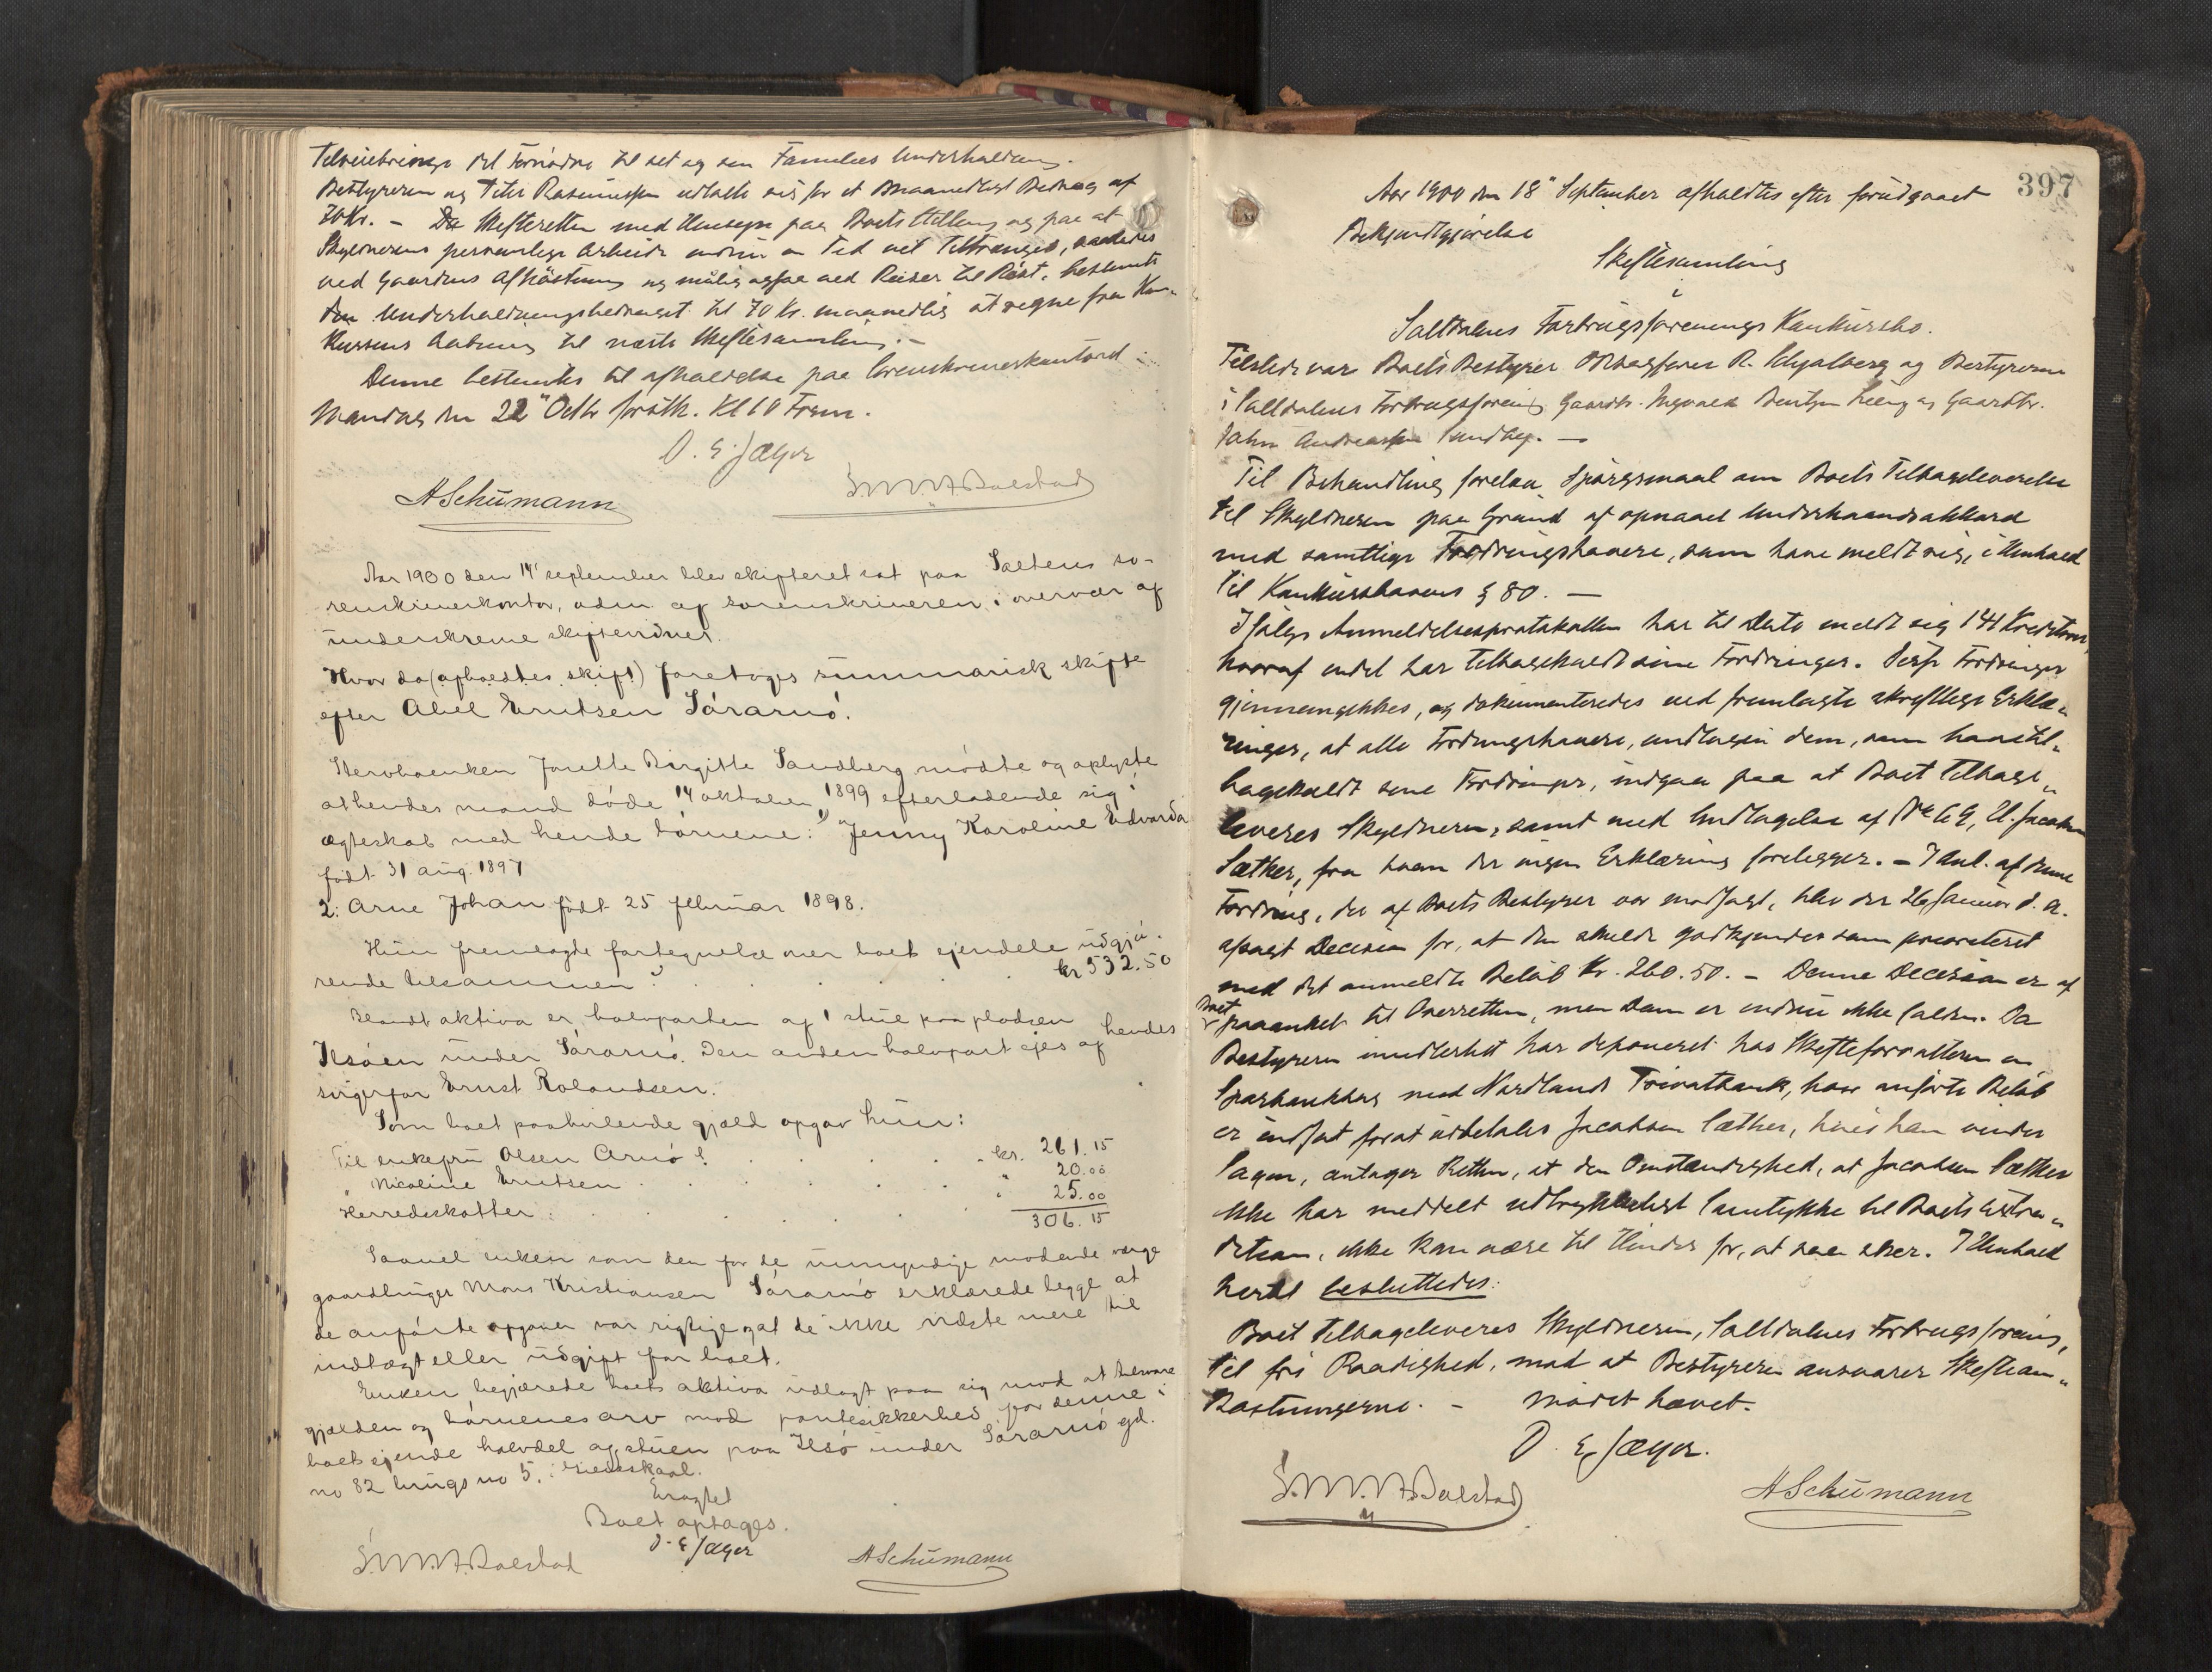 Tilveiebringe det Fornødne til sit og sin Families Underholdning.
Bestyreren og Peter Rasmussen udtalte sig for et maanedligt Bidrag af
70 Kr. – Skifteretten med Hensyn paa Boets Stilling og paa at
Skyldnerens personlige Arbeide endnu en Tid vil Tiltrænges, saaledes
ved Gaardens Afhøstning og mulig ogsaa ved Reiser til Røst, bestemte
Underholdningsbidraget til 70 Kr. maanedlig at regne fra Kon-
kursens Aabning til næste Skiftesamling. –
Denne bestemtes til afholdelse paa Sorenskriverkontoret
Mandag den 22" Octbr førstk. Kl 10 Form.
O. E. Jæger
A Schumann
S.M.N.A. Bolstad
Aar 1900 den 14' september blev skifteret sat paa Saltens so-
renskriverkontor, adm. af sorenskriveren i overvær af
underskrevne skiftevidner.
Hvor da (afholdtes skift) foretoges summarisk skifte
efter Abel Knutsen Sørarnø.
Stervboenken Jorette Birgitte Sandberg mødte og oplyste
at hendes mand døde 14 oktober 1899 efterladende sig i
ægteskab med hende børnene: 1) Jenny Karoline Edvarda
født 31 aug. 1897
2: Arne Johan født 25 februar 1898.
Hun fremlagte fortegnelse over boets ejendele udgjø-
rende tilsammen kr 532.50
Blandt aktiva er halvparten af 1 stue paa pladsen
Ilsøen under Sørarnø. Den anden halvpart ejes af hendes
svigerfar Ernst Rolandsen.
Som boet paahvilende gjæld opgav hun:
Til enkefru Olsen Arnø kr. 261.15
" Nicoline Knutsen " 20.00
Herredskatter 25.00
306.15
Saavel enken som den for de umyndige mødende værge
gaardbruger Mons Kristiansen Sørarnø erklærede begge at
de anførte opgaver var rigtige og at de ikke vidste mere til
indtægt eller udgift for boet.
Enken begjærede boets aktiva udlagt paa sig mod at tilsvare
gjælden og børnenes arv mod pantesikkerhed for denne i
boets ejende halvdel af stuen paa Ilsø under Sørarnø gd.
no 82 brugs no 5. i Gildeskaal.
Eragtet
Boet optages.
O. E Jæger
S.M.N.A. Bolstad
A Schumann
397
Aar 1900 den 18" September afholdtes efter forudgaaet
Bekjendtgjørelse
Skiftesamling
i
Saltdalens Forbrugsforenings Konkursbo.
Tilstede var Boets Bestyrer Odsagfører R. Schjølberg og Bestyrerne
i Saltdalens Forbrugsforening Gaardbr. Ingvald Bentsen Leeng og Gaardbr.
John Andreassen Sundby. –
Til Behandling forelaa Spørgsmaal om Boets Tilbageleverelse
til Skyldneren paa Grund af opnaaet Underhaandsakkord
med samtlige Fordringshavere, som have meldt sig, i Henhold
til Konkurslovens § 80. –
Ifølge Anmeldelsesprotokollen har til Dato meldt sig 141 Kreditorer,
hvoraf endel har tilbagekaldt sine Fordringer. Disse Fordringer
gjennemgikkes, og dokumenteredes ved fremlagte skriftlige Erklæ-
ringer, at alle Fordringshavere, undtagen dem, som have til-
bagekaldt sine Fordringer, indgaa paa at Boet tilbage-
leveres Skyldneren, samt med Undtagelse af No 69, H. Jacobsen
Sæther, fra hvem der ingen Erklæring foreligger. – I Anl. af denne
Fordring, der af Boets Bestyrer var modsagt, blev der 26 Januar d. A.
afsagt Decision for, at den skulde godkjendes som prioriteret
med det anmeldte Beløb Kr. 260.50. – Denne Decision er af
Boet paaanket til Overretten, men Dom er endnu ikke falden. Da
Bestyreren imidlertid har deponeret hos Skifteforvalteren en
Sparbankbog med Nordlands Privatbank, hvor anførte Beløb
er indsat forat udbetales Jacobsen Sæther, hvis han vinder
Sagen, antager Retten, at den Omstændighed, at Jacobsen Sæther
ikke har meddelt udtrykkeligt Samtykke til Boets extra-
dition, ikke kan være til Hinder for, at saa sker. I Henhold
hertil besluttedes:
Boet tilbageleveres Skyldneren, Saltdalens Forbrugsforening,
til fri Raadighed, mod at Bestyreren ansvarer Skifteom-
kostningerne. – Mødet hævet.
O. E. Jæger.
S.M.N.A. Bolstad
A Schumann